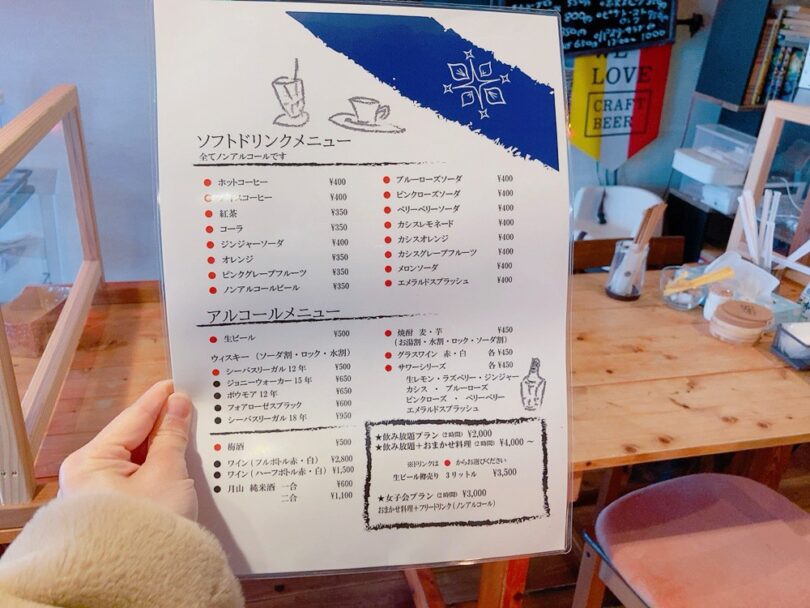 WE
LOVE
CRAFT
BEER
ソフトドリンクメニュー
全てノンアルコールです
ホットコーヒー ¥400
アイスコーヒー ¥400
紅茶 ¥350
コーラ ¥350
ジンジャーソーダ ¥400
オレンジ ¥350
ピンクグレープフルーツ ¥350
ノンアルコールビール ¥350
ブルーローズソーダ ¥400
ピンクローズソーダ ¥400
ベリーベリーソーダ ¥400
カシスレモネード ¥400
カシスオレンジ ¥400
カシスグレープフルーツ ¥400
メロンソーダ ¥400
エメラルドスプラッシュ ¥400
アルコールメニュー
生ビール ¥500
ウィスキー(ソーダ割・ロック・水割)
シーバスリーガル 12年 ¥500
ジョニーウォーカー 15年 ¥650
ボウモア 12年 ¥650
フォアローゼスブラック ¥600
シーバスリーガル 18年 ¥950
梅酒 ¥500
ワイン(フルボトル赤・白) ¥2,800
ワイン(ハーフボトル赤・白) ¥1,500
月山 純米酒 一合 ¥600
二合 ¥1,100
焼酎 麦・芋 ¥450
(お湯割・水割・ロック・ソーダ割)
グラスワイン 赤・白 各¥450
サワーシリーズ 各¥450
生レモン・ラズベリー・ジンジャー
カシス ・ ブルーローズ
ピンクローズ ・ ベリーベリー
エメラルドスプラッシュ
★飲み放題プラン(2時間) ¥2,000
★飲み放題+おまかせ料理(2時間) ¥4,000~
※ドリンクは ● からお選びください
生ビール樽売り 3リットル ¥3,500
★女子会プラン(2時間) ¥3,000
おまかせ料理+フリードリンク(ノンアルコール)